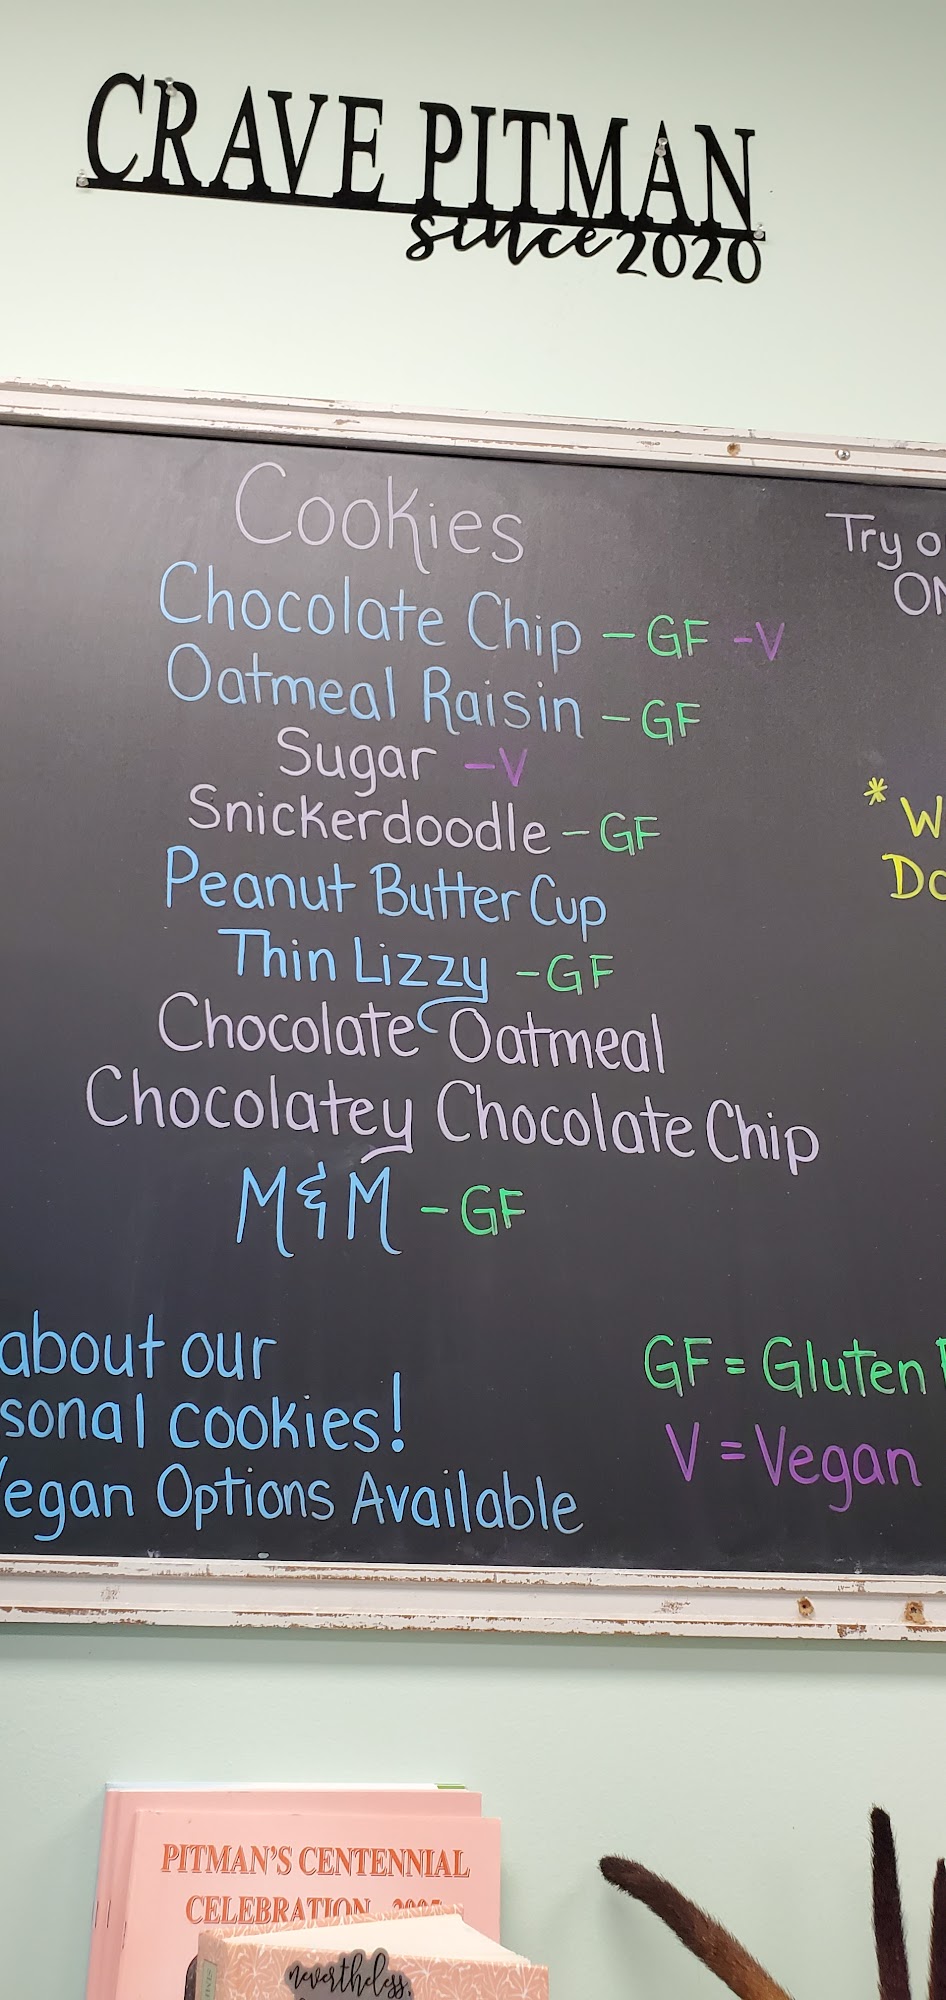 CRAVE PITMAN
since 2020
Cookies
Chocolate Chip - GF - V
Oatmeal Raisin - GF
Sugar - V
Snickerdoodle - GF
Peanut Butter Cup
Thin Lizzy - GF
Chocolate Oatmeal
Chocolatey Chocolate Chip
M & M - GF
about our
sonal cookies!
egan Options Available
Try
GF = Gluten
V = Vegan
PITMAN'S CENTENNIAL
CELEBRATION
nevertheless,